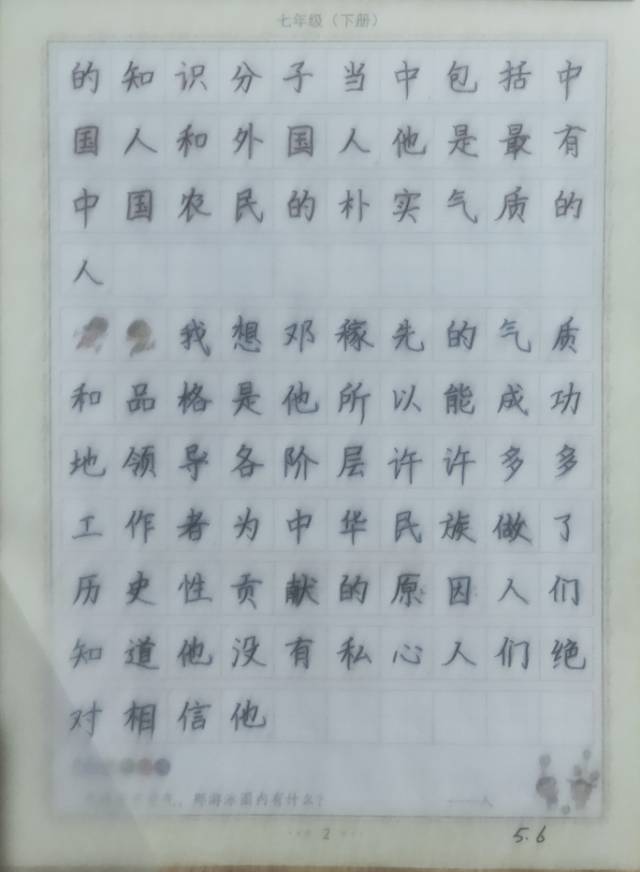 七年级（下册）
的知识分子当中包括中
国人和外国人他是最有
中国农民的朴实气质的
人
我想邓稼先的气质
和品格是他所以能成功
地领导各阶层许许多多
工作者为中华民族做了
历史性贡献的原因人们
知道他没有私心人们绝
对相信他
气，那游泳圈内有什么？ ——人
2
5.6